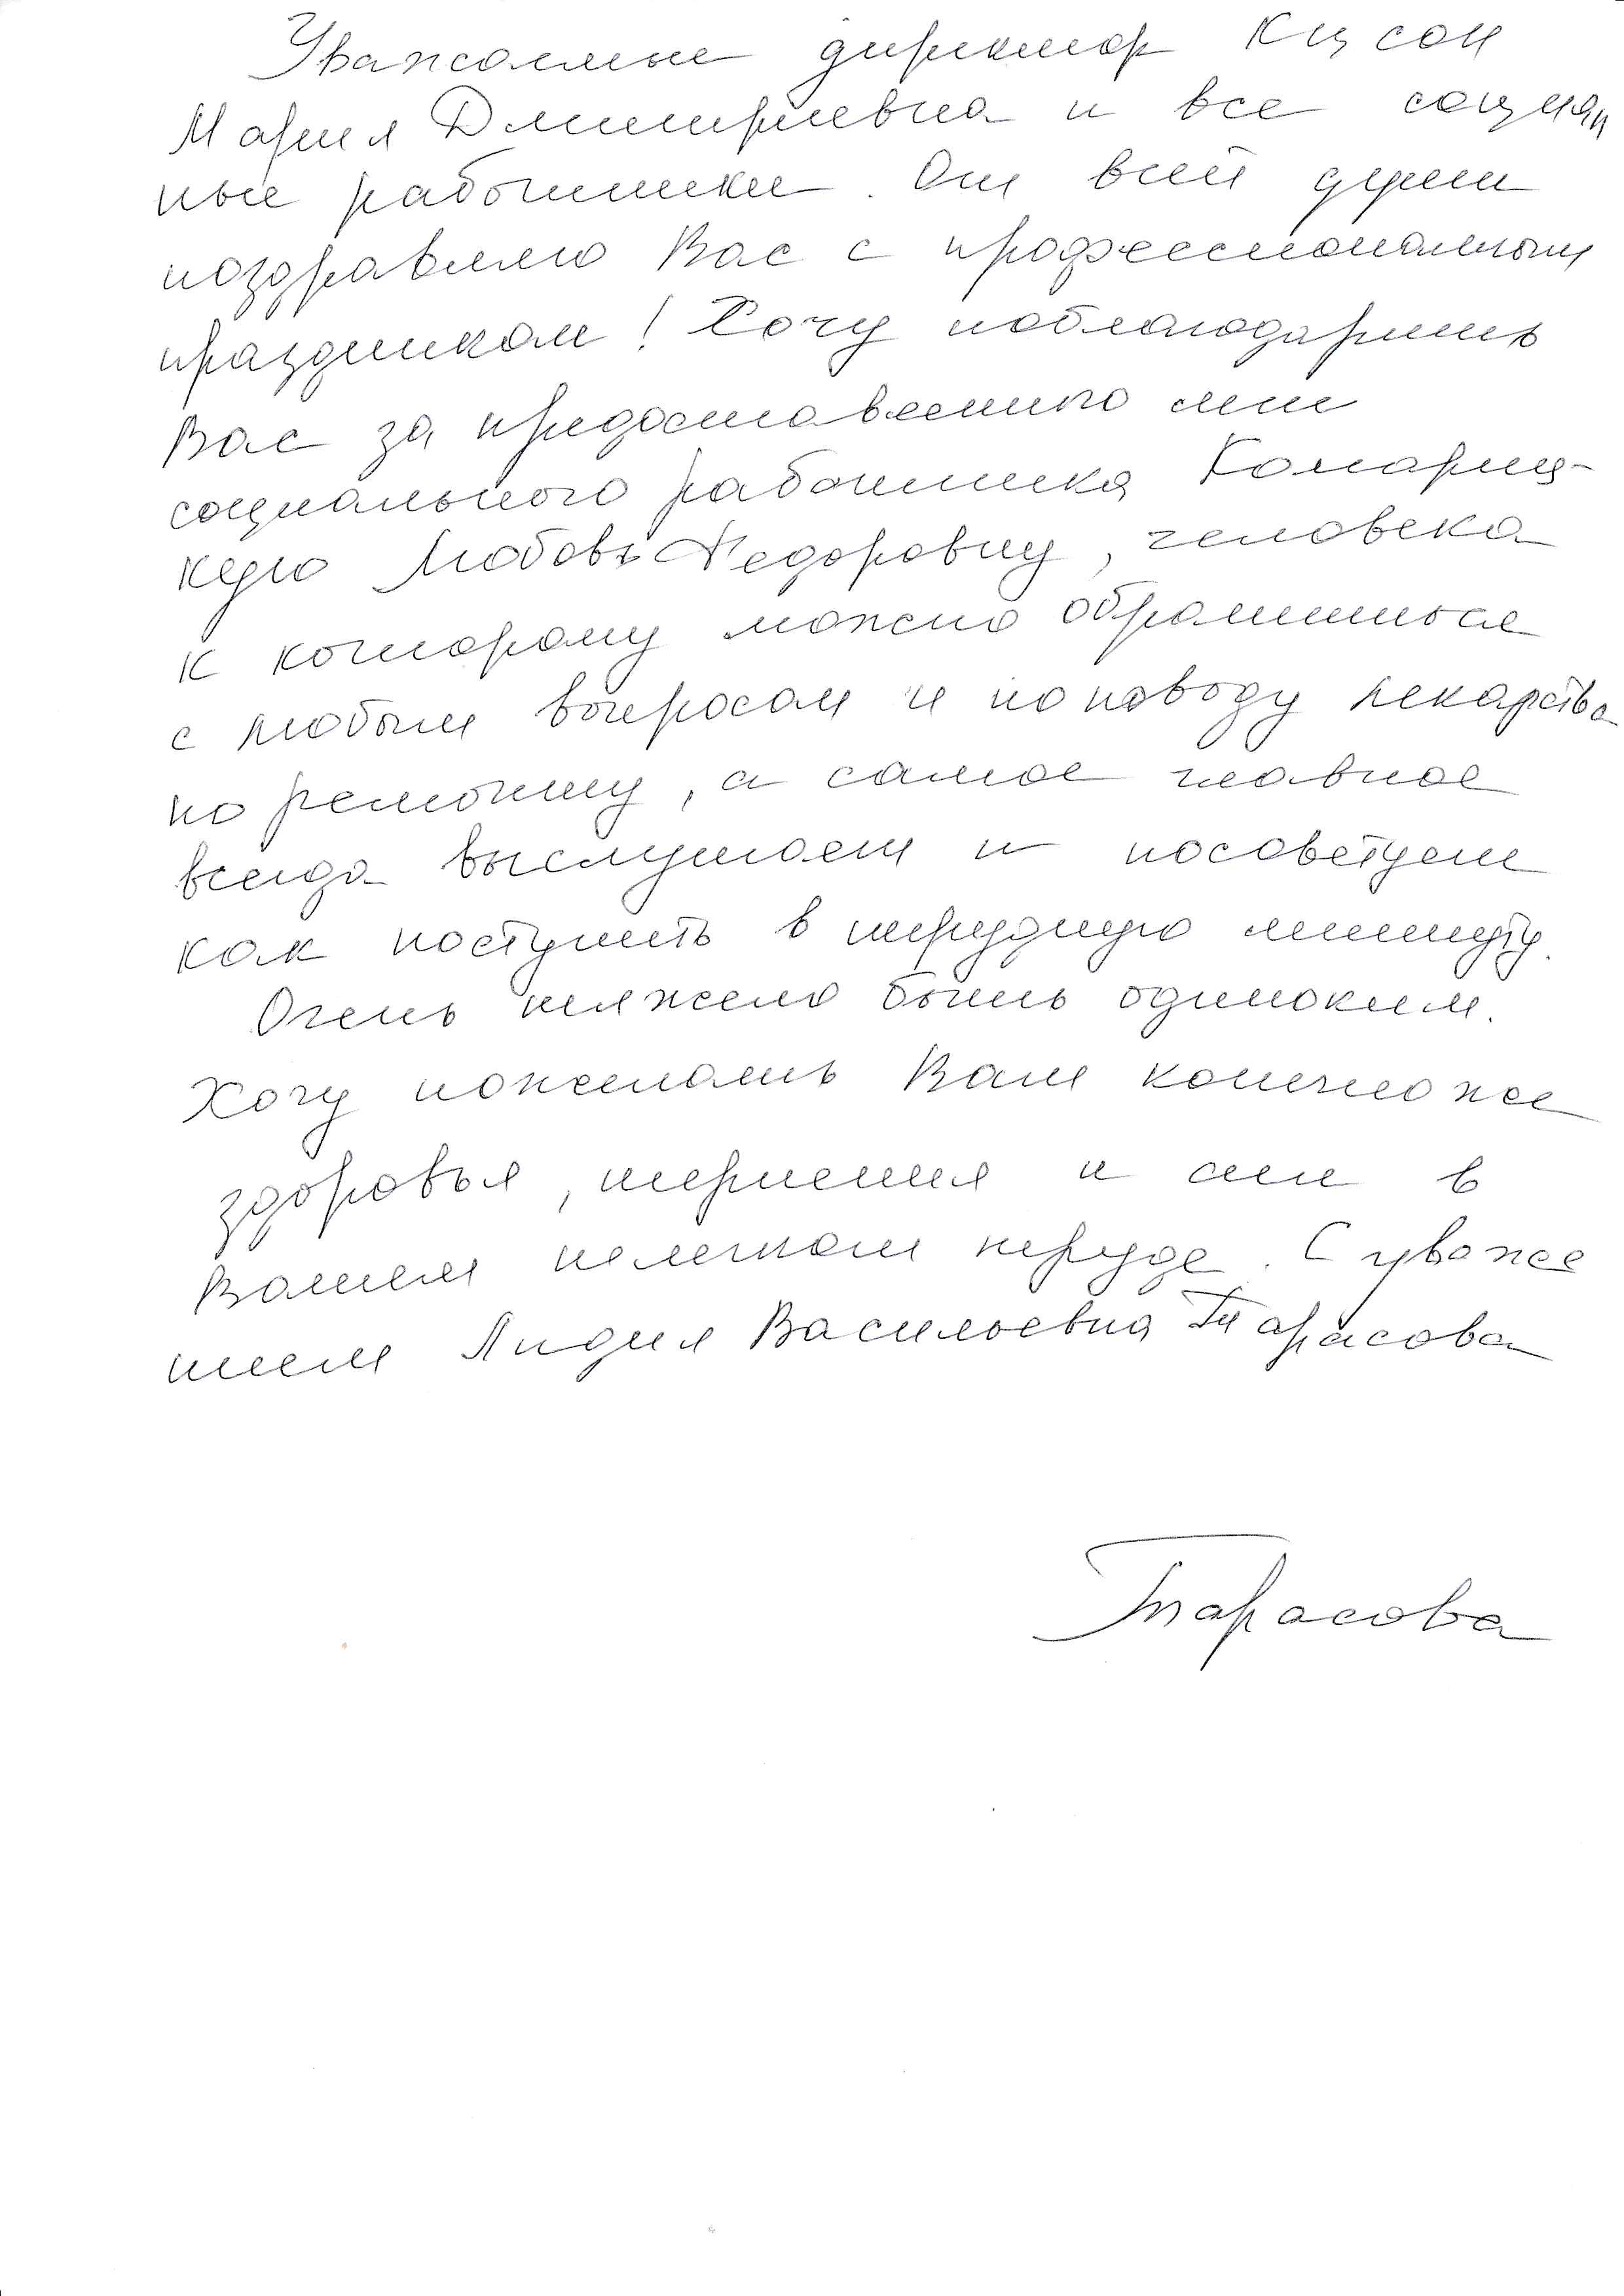 Уважаемые директор КЦСОН
Мария Дмитриевна и все социаль
ные работники. От всей души
поздравляю Вас с профессиональным
праздником! Хочу поблагодарить
Вас за предоставленного мне
социального работника Комариц-
кую Любовь Федоровну, человека
к которому можно обратиться
с любым вопросом и по поводу лекарства
по ремонту, а самое главное
всегда выслушает и посоветует
как поступить в трудную минуту.
Очень тяжело быть одиноким.
Хочу пожелать Вам конечно же
здоровья, терпения и сил в
Вашем нелегком труде. С уваже
нием Лидия Васильевна Тарасова
Тарасова